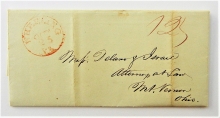 12½
Messrs Delano & Israel
Attorneys at Law
Mt. Vernon
Ohio.